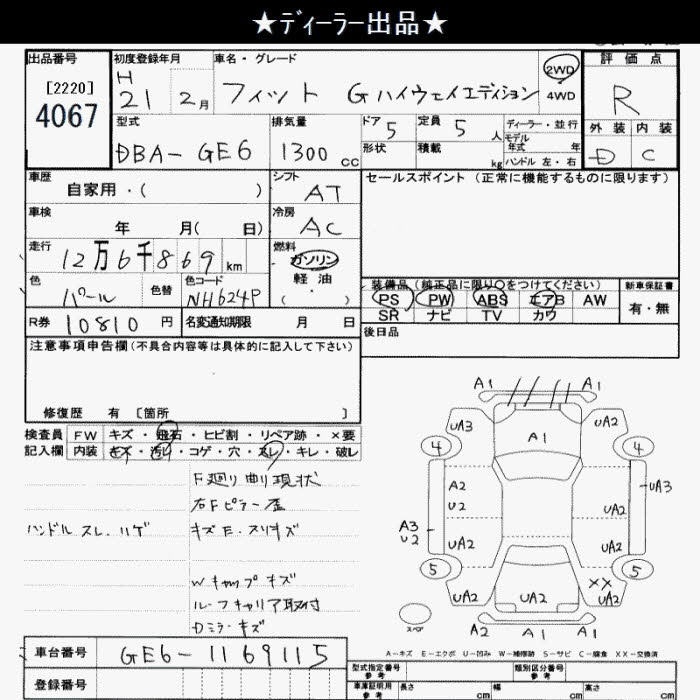 ★ディーラー出品★
出品番号 初度登録年月 車名・グレード 評価点
[2220] H
4067 21 2月 フィット Gハイウェイエディション 2WD 4WD R
型式 排気量 ドア 5 定員 5 人 ディーラー・並行 外装 内装
モデル年式 年
DBA-GE6 1300 cc 形状 積載 kg ハンドル 左・右 D C
車歴 シフト セールスポイント(正常に機能するものに限ります)
自家用・( ) AT
車検 冷房
年 月( 日) AC
走行 燃料
12万6千869 km ガソリン
色 色替 色コード 軽油
パール NH624P ( ・ )
装備品(純正品に限り○をつけてください) 新車保証書
PS PW ABS エアB AW 有・無
SR ナビ TV カワ
R券 10810 円 名変通知期限 月 日
後日品
注意事項申告欄(不具合内容等は具体的に記入して下さい)
修復歴 有 [箇所 ]
検査員 FW キズ・飛石・ヒビ割・リペア跡・×要
記入欄 内装 キズ・汚れ・コゲ・穴・スレ・キレ・破レ
F廻り曲り現状
右Fピラー歪
ハンドルスレ.ハゲ キズE.スリキズ
Wキャップキズ
ルーフキャリア取付
Dミラーキズ
A1 A1
UA3 A1 UA2
4 4
A2 UA3
U2 UA2
A3
U2 UA2 UA2
5 5
XX
UA2 UA2 UA2
スペア
A2 A1 A1
A-キズ E-エクボ U-凹み W-補修跡 S-サビ C-腐食 XX-交換済
車台番号 GE6-1169115
型式指定番号 参考 類別区分番号 参考
登録番号 車庫証明用 参考 長さ cm 幅 cm 高さ cm